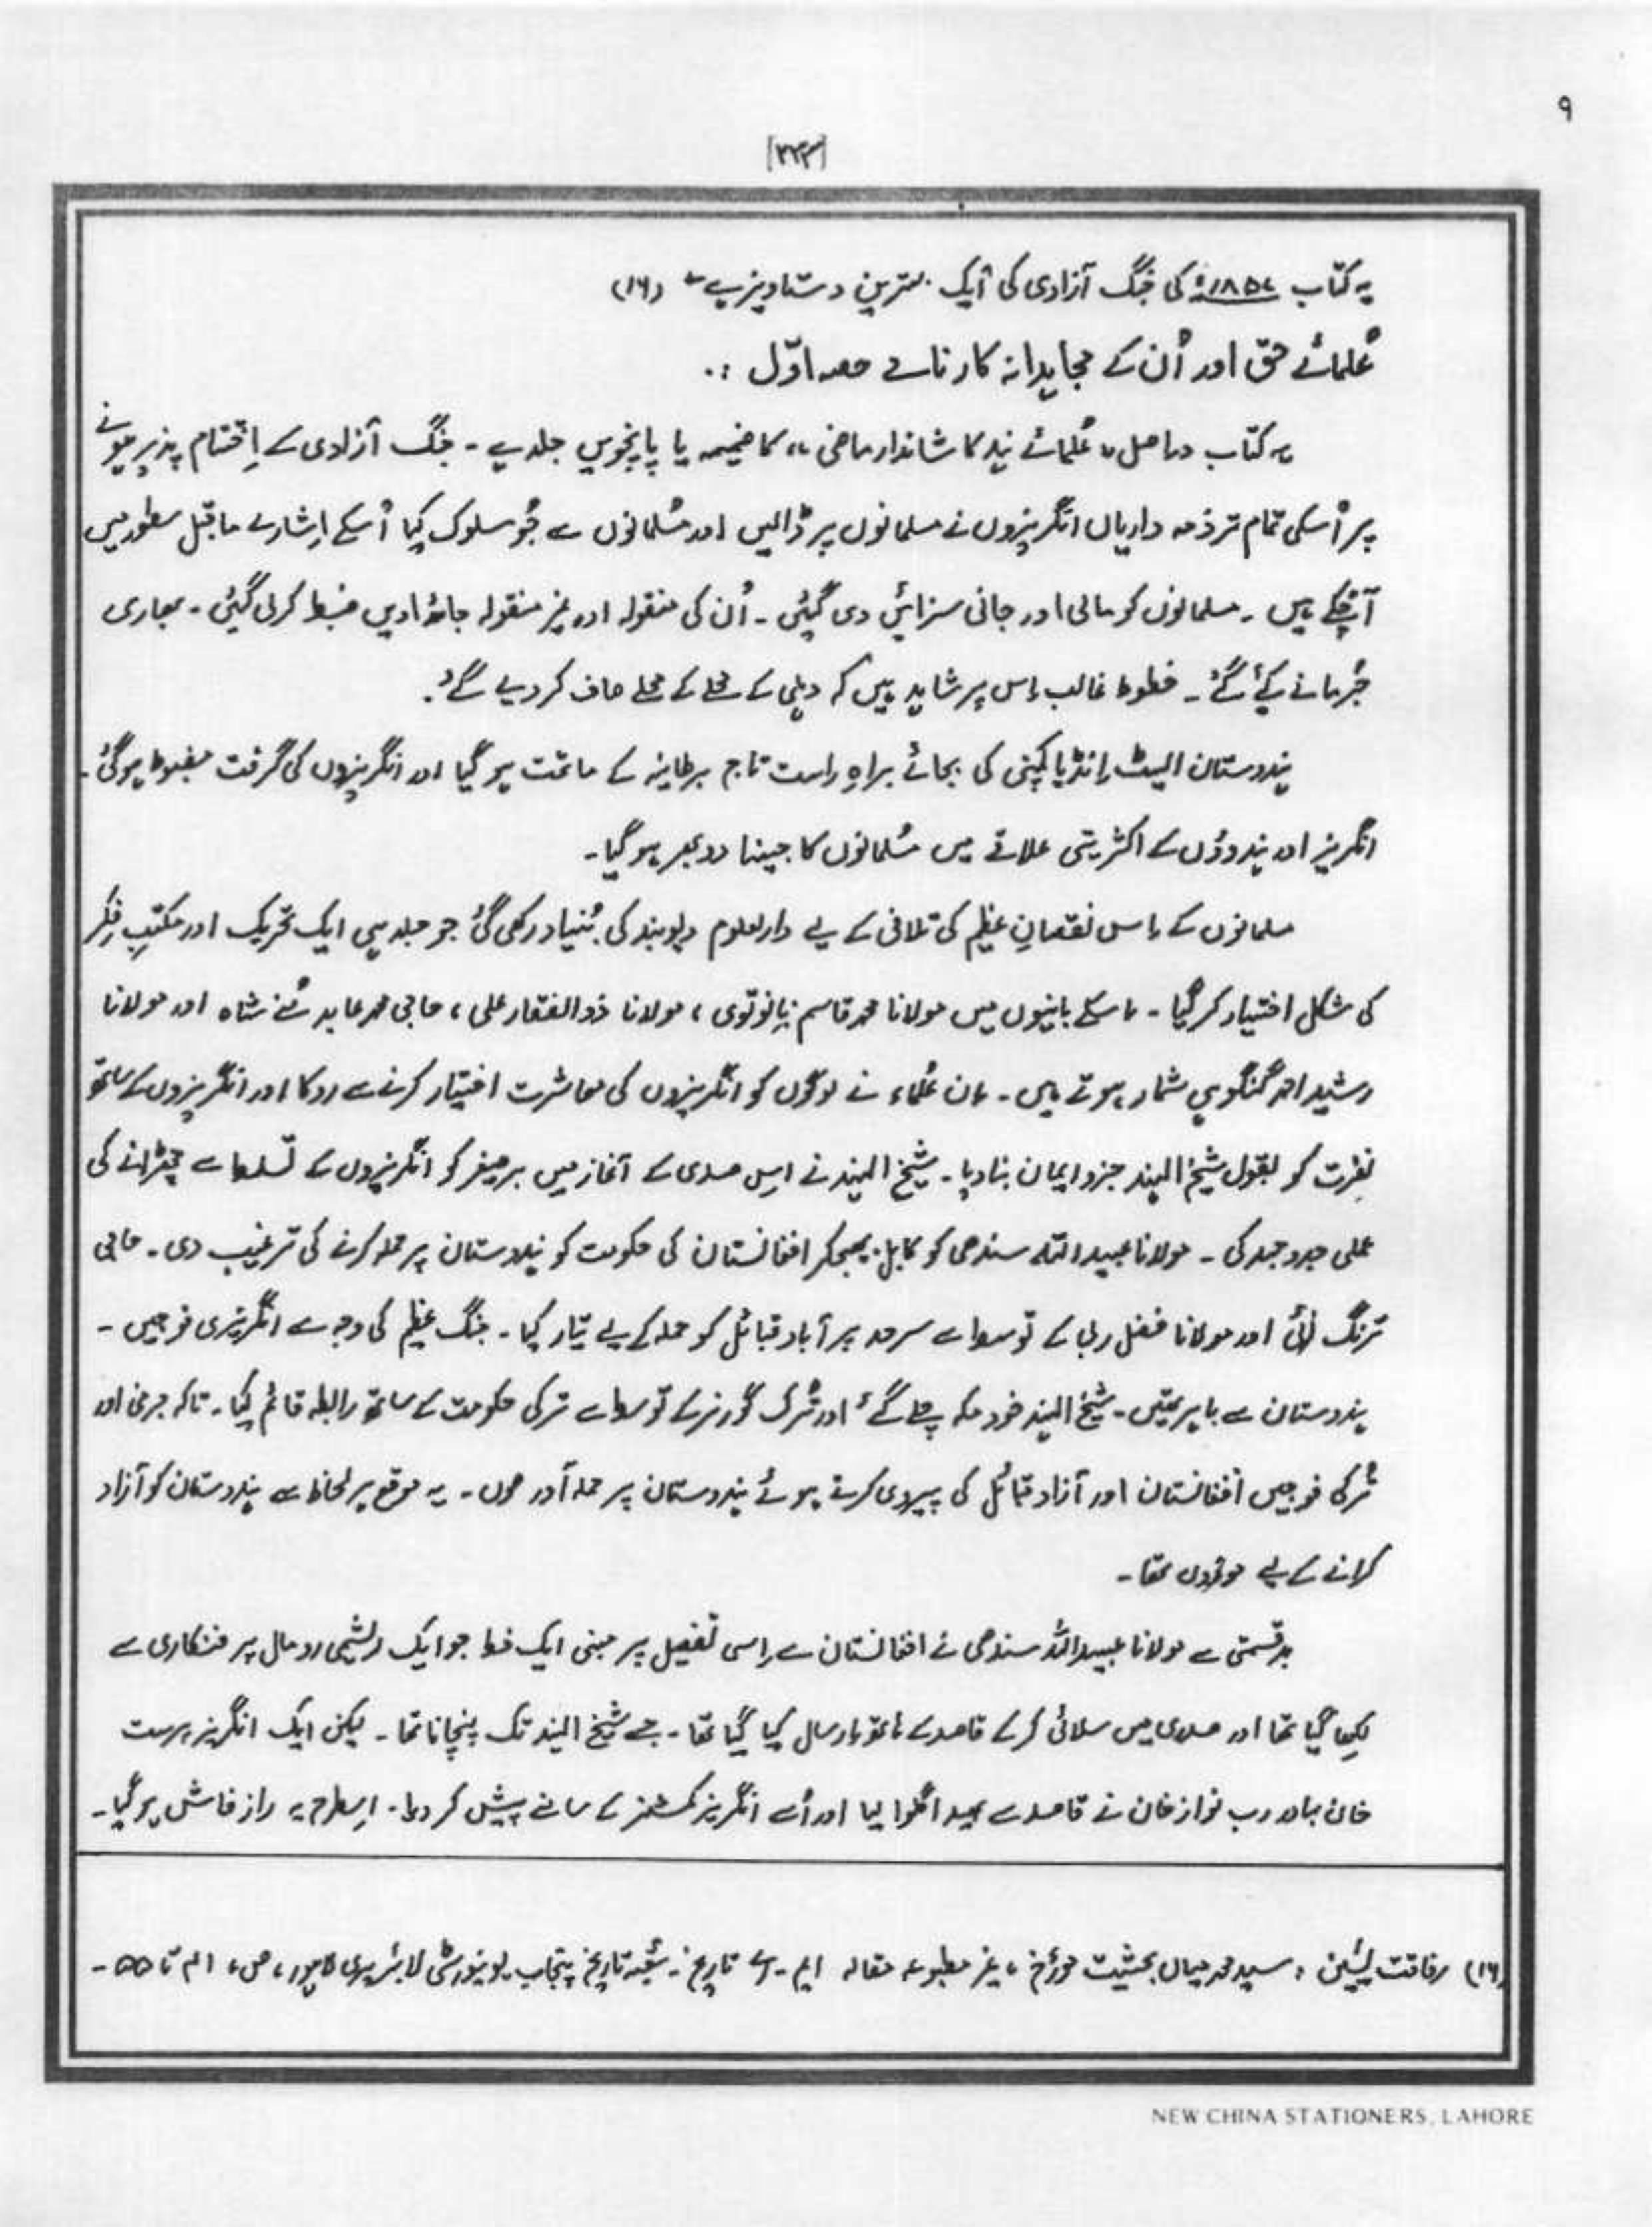 ۹
[۲۲۳]
یہ کتاب ۱۸۵۷ء کی جنگ آزادی کی ایک بہترین دستاویز ہے۔ (۱۶)
عُلمائے حق اور اُن کے مجاہدانہ کارنامے حصہ اوّل :.
یہ کتاب دراصل ،، عُلمائے ہند کا شاندار ماضی ،، کا ضمیمہ یا پانچویں جلد ہے - جنگ آزادی کے اِختتام پذیر ہونے
پر اُسکی تمام تر ذمہ داریاں انگریزوں نے مسلمانوں پر ڈالیں اور مُسلمانوں سے جُو سلوک کیا اُسکے اِشارے ماقبل سطور میں
آچکے ہیں - مسلمانوں کو مالی اور جانی سزائیں دی گئیں - اُن کی منقولہ اور غیر منقولہ جائدادیں ضبط کرلی گیئں - بھاری
جُرمانے کیٔے گئے - خطوط غالب اِس پر شاہد ہیں کہ دہلی کے محلے کے محلے صاف کر دیے گئے.
ہندوستان ایسٹ اِنڈیا کمپنی کی بجائے براہِ راست تاج برطانیہ کے ماتحت ہو گیا اور انگریزوں کی گرفت مضبوط ہوگئی -
انگریز اور ہندوؤں کے اکثریتی علاقے میں مُسلمانوں کا جینا دوبھر ہو گیا -
مسلمانوں کے اِس نقصانِ عظیم کی تلافی کے لیے دارلعلوم دیوبند کی بُنیاد رکھی گئی جو جلد ہی ایک تحریک اور مکتبِ فِکر
کی شکل اختیار کر گیا - اِسکے بانیوں میں مولانا محمد قاسم نانوتوی ، مولانا ذوالفقار علی ، حاجی محمد عابد شاہ اور مولانا
رشید احمد گنگوہی شمار ہوتے ہیں - اِن عُلماء نے لوگوں کو انگریزوں کی معاشرت اختیار کرنے سے روکا اور انگریزوں کے ساتھ
نفرت کو بقول شیخ الہند جزو ایمان بنا دیا - شیخ الہند نے اِس صدی کے آغاز میں برصغیر کو انگریزوں کے تسلط سے چھڑانے کی
عملی جدوجہد کی - مولانا عبیداللہ سندھی کو کابل بھیجکر افغانستان کی حکومت کو ہندوستان پر حملہ کرنے کی ترغیب دی - حاجی
ترنگ زئی اور مولانا فضل ربی کے توسط سے سرحد پر آباد قبائل کو حملہ کے لیے تیار کیا - جنگ عظیم کی وجہ سے انگریزی فوجیں -
ہندوستان سے باہر تھیں - شیخ الہند خود مکہ چلے گئے اور تُرک گورنر کے توسط سے ترکی حکومت کے ساتھ رابطہ قائم کیا - تاکہ جرمنی اور
تُرکی فوجیں افغانستان اور آزاد قبائل کی پیروی کرتے ہوئے ہندوستان پر حملہ آور ہوں - یہ موقع ہر لحاظ سے ہندوستان کو آزاد
کرانے کے لیے موزوں تھا -
بدقسمتی سے مولانا عبیداللہ سندھی نے افغانستان سے اِسی تفصیل پر مبنی ایک خط جو ایک ریشمی رومال پر فنکاری سے
لکھا گیا تھا اور صدری میں سلائی کر کے قاصد کے ہاتھ اِرسال کیا گیا تھا - جسے شیخ الہند تک پہنچانا تھا - لیکن ایک انگریز پرست
خان بہادر رب نواز خان نے قاصد سے بھید اگلوا لیا اور اُسے انگریز کمشنر کے سامنے پیش کر دیا - اِسطرح یہ راز فاش ہو گیا -
(۱۶) رفاقت یٰسین ، سید محمد میاں بحثیت مورٔخ ، غیر مطبوعہ مقالہ ایم - اے تاریخ - شعبہ تاریخ پنجاب یونیورسٹی لائبریری لاہور ، ص ، ۴۱ تا ۵۵ -
NEW CHINA STATIONERS, LAHORE